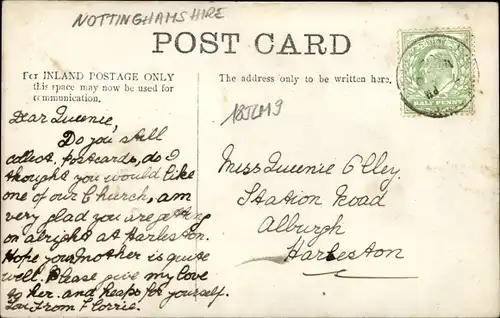 NOTTINGHAMSHIRE
POST CARD
For INLAND POSTAGE ONLY
this space may now be used for
communication.
The address only to be written here.
HALF PENNY
Dear Queenie,
Do you still
collect, postcards, do I
thought you would like
one of our Church, am
very glad you are getting
on alright at Harleston.
Hope your mother is quite
well. Please give my love
to her. and heaps for yourself.
From Florrie.
Miss Queenie Olley.
Station Road
Alburgh
Harleston